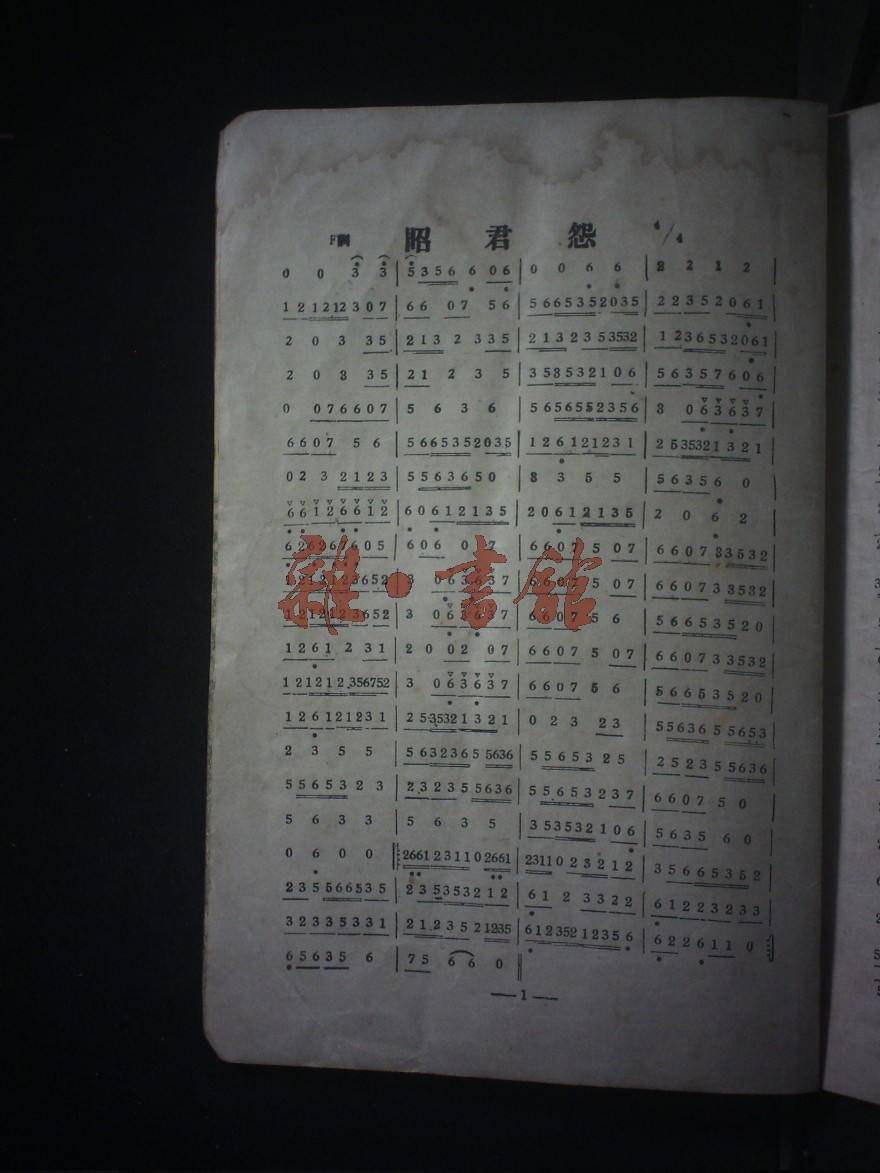 F調 昭君怨 4/4
0 0 3 3 | 5 3 5 6 6 0 6 | 0 0 6 6 | 2 2 1 2 |
1 2 1 2 1 2 3 0 7 | 6 6 0 7 5 6 | 5 6 6 5 3 5 2 0 3 5 | 2 2 3 5 2 0 6 1 |
2 0 3 3 5 | 2 1 3 2 3 3 5 | 2 1 3 2 3 5 3 5 3 2 | 1 2 3 6 5 3 2 0 6 1 |
2 0 3 3 5 | 2 1 2 3 5 | 3 5 3 5 3 2 1 0 6 | 5 6 3 5 7 6 0 6 |
0 0 7 6 6 0 7 | 5 6 3 6 | 5 6 5 6 5 5 2 3 5 6 | 3 0 6 3 6 3 7 |
6 6 0 7 5 6 | 5 6 6 5 3 5 2 0 3 5 | 1 2 6 1 2 1 2 3 1 | 2 5 3 5 3 2 1 3 2 1 |
0 2 3 2 1 2 3 | 5 5 6 3 6 5 0 | 3 3 5 5 | 5 6 3 5 6 0 |
6 6 1 2 6 6 1 2 | 6 0 6 1 2 1 3 5 | 2 0 6 1 2 1 3 5 | 2 0 6 2 |
6 2 6 2 6 7 6 0 5 | 6 0 6 0 7 | 6 6 0 7 5 0 7 | 6 6 0 7 3 3 5 3 2 |
1 2 1 2 1 2 3 6 5 2 | 3 0 6 3 6 3 7 | 6 6 0 7 5 0 7 | 6 6 0 7 3 3 5 3 2 |
1 2 1 2 1 2 3 6 5 2 | 3 0 6 3 6 3 7 | 6 6 0 7 5 6 | 5 6 6 5 3 5 2 0 |
1 2 6 1 2 3 1 | 2 0 0 2 0 7 | 6 6 0 7 5 0 7 | 6 6 0 7 3 3 5 3 2 |
1 2 1 2 1 2 3 5 6 7 5 2 | 3 0 6 3 6 3 7 | 6 6 0 7 5 6 | 5 6 6 5 3 5 2 0 |
1 2 6 1 2 1 2 3 1 | 2 5 3 5 3 2 1 3 2 1 | 0 2 3 2 3 | 5 5 6 3 6 5 5 6 5 3 |
2 3 5 5 | 5 6 3 2 3 6 5 5 6 3 6 | 5 5 6 5 3 2 5 | 2 5 2 3 5 5 6 3 6 |
5 5 6 5 3 2 3 | 2 3 2 3 5 5 6 3 6 | 5 5 6 5 3 2 3 7 | 6 6 0 7 5 0 |
5 6 3 3 | 5 6 3 5 | 3 5 3 5 3 2 1 0 6 | 5 6 3 5 6 0 |
0 6 0 0 ‖: 2 6 6 1 2 3 1 1 0 2 6 6 1 | 2 3 1 1 0 2 3 2 1 2 | 3 5 6 6 5 3 5 2 |
2 3 5 5 6 6 5 3 5 | 2 3 5 3 5 3 2 1 2 | 6 1 2 3 3 2 2 | 6 1 2 2 3 2 3 3 |
3 2 3 3 5 3 3 1 | 2 1 2 3 5 2 1 2 3 5 | 6 1 2 3 5 2 1 2 3 5 6 | 6 2 2 6 1 1 0 :‖
6 5 6 3 5 6 | 7 5 6 6 0 ‖
—1—
雜·書館